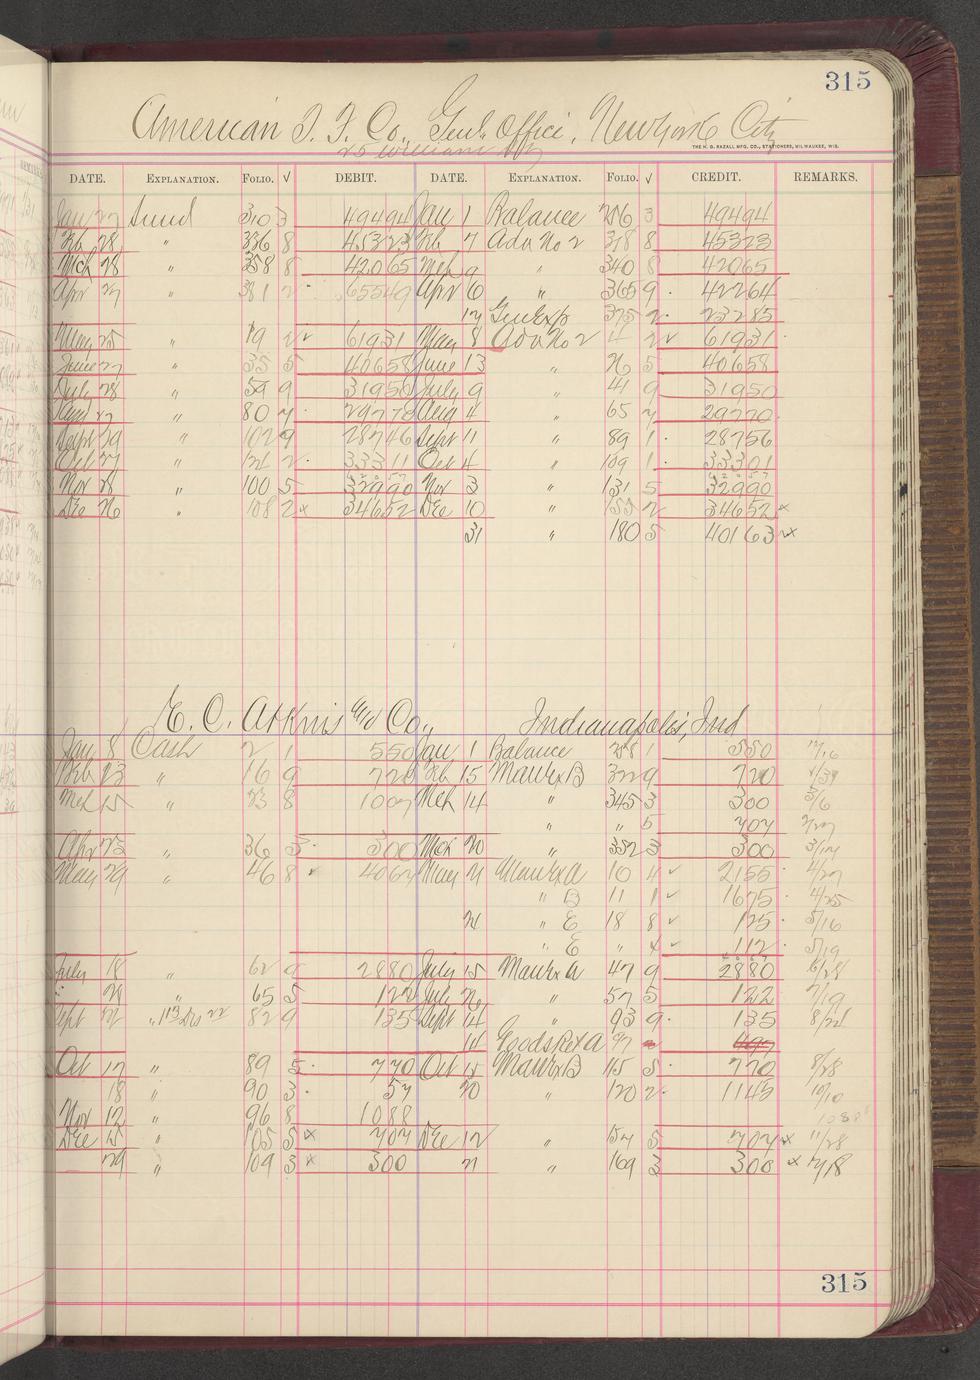 315
American T. F. Co., Genl. Office, New York City
25 William St
THE H. G. RAZALL MFG. CO., STATIONERS, MILWAUKEE, WIS.
DATE. EXPLANATION. FOLIO. √ DEBIT. DATE. EXPLANATION. FOLIO. √ CREDIT. REMARKS.
Jan 27 Sund 310 3 49494 Jan 1 Balance 286 3 49494
Feb 28 " 336 8 45323 Feb 7 Adv No 2 318 8 45323
Mch 28 " 358 8 42065 Mch 9 " 340 8 42065
Apr 27 " 381 2 65549 Apr 6 " 365 9 42264
17 Gen Exp 375 2 23285
May 25 " 19 2 61931 May 8 Adv No 2 4 2 61931
June 27 " 35 5 40658 June 13 " 26 5 40658
July 28 " 59 9 31950 July 9 " 41 9 31950
" 80 7 29770 Aug 4 " 65 7 29770
Sept 29 " 102 9 28746 Sept 11 " 89 1 28756
Oct 27 " 121 2 33311 Oct 4 " 109 1 33301
Nov 28 " 100 5 32990 Nov 3 " 131 5 32990
Dec 26 " 108 2 x 34652 Dec 10 " 155 2 34652 x
31 " 180 5 40163 x
E. C. Atkins and Co., Indianapolis, Ind
Jan 8 Cash 2 1 550 Jan 1 Balance 288 1 550 12/16
Feb 23 " 16 9 720 Feb 15 Manfr Ex B 322 9 720 1/29
Mch 15 " 23 8 1007 Mch 14 " 345 3 300 3/6
" " 5 707 2/27
Apr 23 " 36 3 300 Mch 20 " 352 3 300 3/14
May 29 " 46 8 4067 May 21 Manfr Ex A 10 4 2155 4/27
" B 11 1 1675 4/25
24 " E 18 8 125 5/16
" E " 4 112 5/19
July 18 " 62 9 2880 July 15 Manfr Ex A 47 9 2880 6/28
" 28 " 65 5 122 July 26 " 57 5 122 7/19
Sept 21 " 82 9 135 Sept 14 " 93 9 135 8/22
14 Goods Ret A 97
Oct 17 " 89 5 770 Oct 15 Manfr Ex B 115 5 770 8/28
18 " 90 3 57 20 " 120 2 1145 10/10
Nov 12 " 96 8 1088 1088
Dec 15 " 105 5 x 707 Dec 12 " 157 5 707 x 11/28
29 " 109 3 x 300 21 " 169 3 300 x 12/18
315